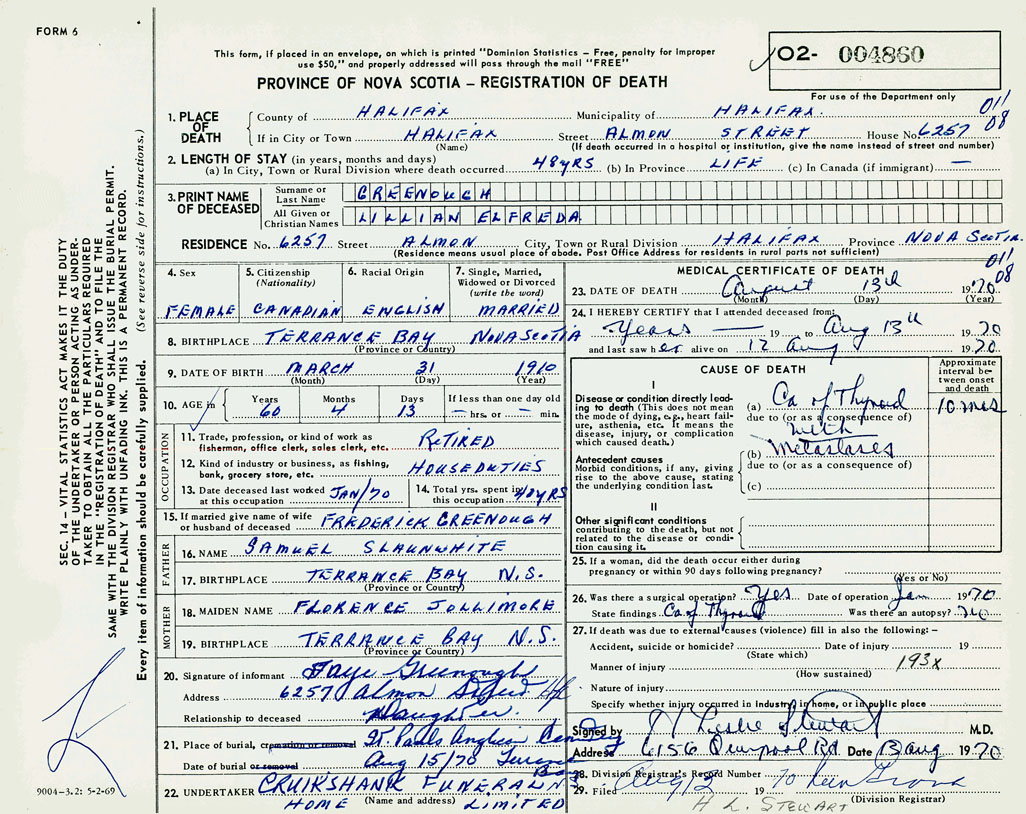 FORM 6
This form, if placed in an envelope, on which is printed "Dominion Statistics – Free, penalty for improper
use $50," and properly addressed will pass through the mail "FREE"
O2- 004860
PROVINCE OF NOVA SCOTIA – REGISTRATION OF DEATH
For use of the Department only
011
08
1. PLACE OF DEATH
County of HALIFAX Municipality of HALIFAX.
If in City or Town HALIFAX Street ALMON STREET House No. 6257
(Name) (If death occurred in a hospital or institution, give the name instead of street and number)
2. LENGTH OF STAY (in years, months and days)
(a) In City, Town or Rural Division where death occurred 48 YRS (b) In Province LIFE (c) In Canada (if immigrant) —
3. PRINT NAME OF DECEASED
Surname or Last Name GREENOUGH
All Given or Christian Names LILLIAN ELFREDA
RESIDENCE No. 6257 Street ALMON City, Town or Rural Division HALIFAX Province NOVA SCOTIA.
(Residence means usual place of abode. Post Office Address for residents in rural parts not sufficient)
011
08
4. Sex FEMALE
5. Citizenship (Nationality) CANADIAN
6. Racial Origin ENGLISH
7. Single, Married, Widowed or Divorced (write the word) MARRIED
8. BIRTHPLACE TERRANCE BAY NOVA SCOTIA
(Province or Country)
9. DATE OF BIRTH MARCH 31 1910
(Month) (Day) (Year)
10. AGE in Years 60 Months 4 Days 13 If less than one day old – hrs. or – min.
OCCUPATION
11. Trade, profession, or kind of work as fisherman, office clerk, sales clerk, etc. RETIRED
12. Kind of industry or business, as fishing, bank, grocery store, etc. HOUSE DUTIES
13. Date deceased last worked at this occupation JAN/70
14. Total yrs. spent in this occupation 40 YRS
15. If married give name of wife or husband of deceased FREDERICK GREENOUGH
FATHER
16. NAME SAMUEL SLAUNWHITE
17. BIRTHPLACE TERRANCE BAY N.S.
(Province or Country)
MOTHER
18. MAIDEN NAME FLORENCE JOLLIMORE
19. BIRTHPLACE TERRANCE BAY N.S.
(Province or Country)
20. Signature of informant Faye Greenough
Address 6257 Almon Street Hfx
Relationship to deceased Daughter.
21. Place of burial, cremation or removal St. Pauls Anglican Cemetery
Date of burial or removal Aug 15/70 Terence Bay
22. UNDERTAKER CRUIKSHANK FUNERAL
HOME (Name and address) LIMITED
MEDICAL CERTIFICATE OF DEATH
23. DATE OF DEATH August 13th 1970
(Month) (Day) (Year)
24. I HEREBY CERTIFY that I attended deceased from:
Years — 19 to Aug 13th 1970
and last saw her alive on 12 Aug 1970
CAUSE OF DEATH
Approximate interval between onset and death
I
Disease or condition directly leading to death (This does not mean the mode of dying, e.g., heart failure, asthenia, etc. It means the disease, injury, or complication which caused death.)
(a) Ca of Thyroid 10 mos
due to (or as a consequence of)
with
Antecedent causes
Morbid conditions, if any, giving rise to the above cause, stating the underlying condition last.
(b) Metastases
due to (or as a consequence of)
(c)
II
Other significant conditions
contributing to the death, but not related to the disease or condition causing it.
25. If a woman, did the death occur either during pregnancy or within 90 days following pregnancy?
(Yes or No)
26. Was there a surgical operation? Yes Date of operation Jan 1970
State findings Ca of Thyroid Was there an autopsy? no
27. If death was due to external causes (violence) fill in also the following:–
Accident, suicide or homicide? Date of injury 19
(State which)
193x
Manner of injury
(How sustained)
Nature of injury
Specify whether injury occurred in Industry, in home, or in public place
Signed by H Leslie Stewart M.D.
Address 6156 Quinpool Rd Date 13 Aug 1970
28. Division Registrar's Record Number
29. Filed Aug 13 19 70
(Division Registrar)
H L. STEWART
SEC. 14 – VITAL STATISTICS ACT MAKES IT THE DUTY
OF THE UNDERTAKER OR PERSON ACTING AS UNDER-
TAKER TO OBTAIN ALL THE PARTICULARS REQUIRED
IN THE "REGISTRATION OF DEATH" AND TO FILE THE
SAME WITH THE DIVISION REGISTRAR WHO SHALL ISSUE THE BURIAL PERMIT.
WRITE PLAINLY WITH UNFADING INK. THIS IS A PERMANENT RECORD.
Every item of information should be carefully supplied. (See reverse side for instructions.)
9004-3.2: 5-2-69